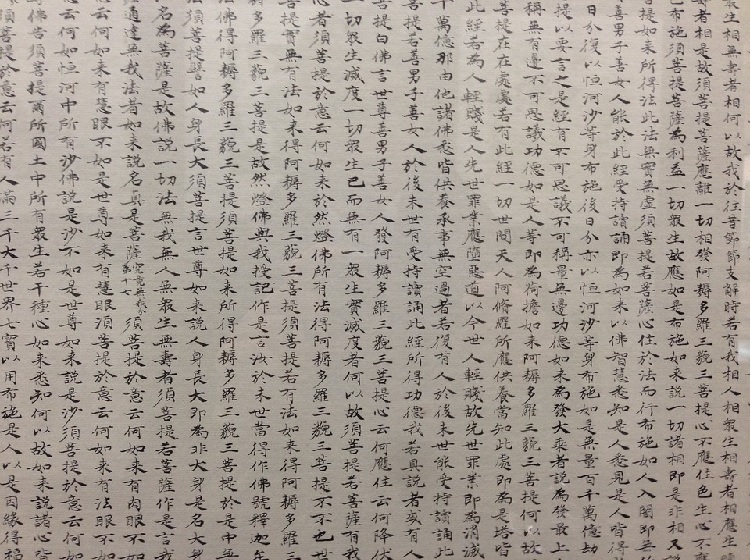 衆生相無壽者相何以故我於往昔節節支解時若有我相人相衆生相壽者相應生
壽者相是故須菩提菩薩應離一切相發阿耨多羅三藐三菩提心不應住色生心不
色布施須菩提菩薩為利益一切衆生故應如是布施如來說一切諸相即是非相又
菩提如來所得法此法無實無虛須菩提若菩薩心住於法而行布施如人入闇即無
善男子善女人能於此經受持讀誦即為如來以佛智慧悉知是人悉見是人皆得
日分復以恒河沙等身布施後日分亦以恒河沙等身布施如是無量百千萬億劫
提以要言之是經有不可思議不可稱量無邊功德如來為發大乘者說為發最上
稱無有邊不可思議功德如是人等即為荷擔如來阿耨多羅三藐三菩提何以故
菩提在在處處若有此經一切世間天人阿修羅所應供養當知此處即為是塔皆
此經若為人輕賤是人先世罪業應墮惡道以今世人輕賤故先世罪業即為消滅
千萬億那由他諸佛悉皆供養承事無空過者若復有人於後末世能受持讀誦此
提若善男子善女人於後末世有受持讀誦此經所得功德我若具說者或有人
菩提白佛言世尊善男子善女人發阿耨多羅三藐三菩提心云何應住云何降伏
一切衆生滅度一切衆生已而無有一衆生實滅度者何以故須菩提若菩薩有我
心者須菩提於意云何如來於然燈佛所有法得阿耨多羅三藐三菩提不不也世
提實無有法如來得阿耨多羅三藐三菩提須菩提若有法如來得阿耨多羅三
法佛得阿耨多羅三藐三菩提是故然燈佛與我授記作是言汝於來世當得作佛號釋迦牟
耨多羅三藐三菩提須菩提如來所得阿耨多羅三藐三菩提於是中無
法須菩提譬如人身長大須菩提言世尊如來說人身長大即為非大身是名大
名為菩薩是故佛說一切法無我無人無衆生無壽者須菩提若菩薩作是言我
通達無我法者如來說名真是菩薩究竟無我分第十七須菩提於意云何如來有肉眼不如
意云何如來有慧眼不如是世尊如來有慧眼須菩提於意云何如來有法眼不如
意云何如恒河中所有沙佛說是沙不如是世尊如來說是沙須菩提於意云何如
佛告須菩提爾所國土中所有衆生若干種心如來悉知何以故如來說諸心皆
須菩提於意云何若有人滿三千大千世界七寶以用布施是人以是因緣得福